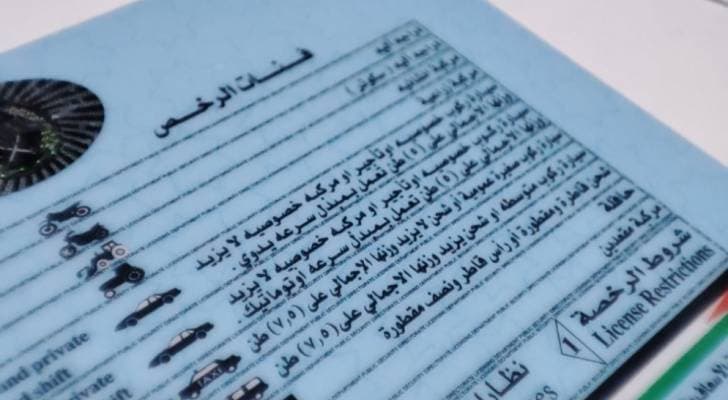 فئات الرخص
دراجة آلية
دراجة آلية (سكوتر)
مركبة إنشائية
مركبة زراعية
سيارة ركوب خصوصيه او تأجير او مركبه خصوصيه لا يزيد
وزنها الإجمالي على (٥) طن تعمل بمبدل سرعه يدوي.
سيارة ركوب خصوصيه او تأجير او مركبه خصوصيه لا يزيد
وزنها الإجمالي على (٥) طن تعمل بمبدل سرعه اوتوماتيك
سيارة ركوب صغيرة عمومية او شحن لا يزيد وزنها الإجمالي على (٧,٥) طن
سيارة ركوب متوسطه او شحن يزيد وزنها الاجمالي على (٧,٥) طن
شحن قاطرة ومقطورة أو رأس قاطر ونصف مقطورة
حافلة
مركبة مقعدين
شروط الرخصة
License Restrictions
1
and private
shift
private
shift
TAXI